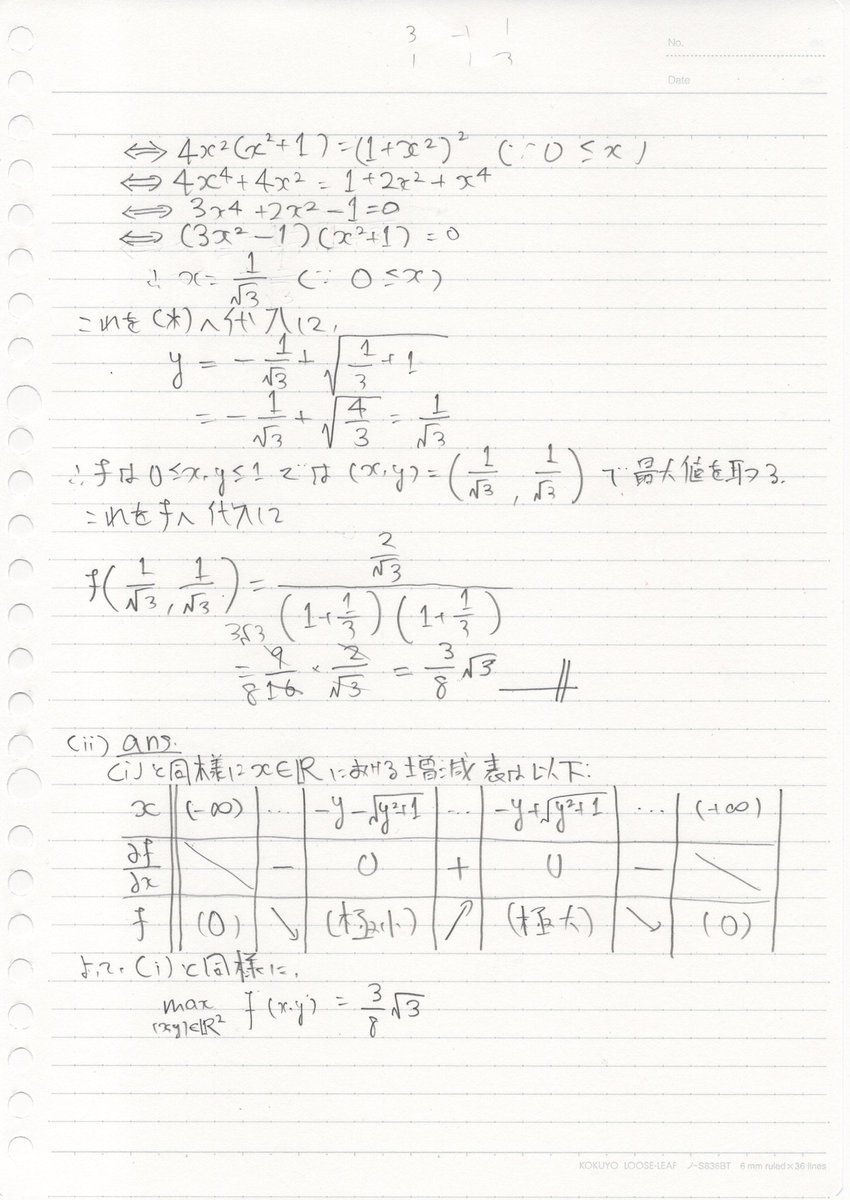 3 1
1 3
No.
Date
⟺ 4x²(x²+1)=(1+x²)² (∵ 0≤x)
⟺ 4x⁴+4x² = 1+2x²+x⁴
⟺ 3x⁴+2x²-1=0
⟺ (3x²-1)(x²+1)=0
∴ x= 1/√3 (∵ 0≤x)
これを(*)へ代入して,
y = -1/√3 + √(1/3+1)
= -1/√3 + √(4/3) = 1/√3
∴ fは 0≤x,y≤1では (x,y)=(1/√3, 1/√3) で最大値を取る.
これをfへ代入して
f(1/√3, 1/√3) = (2/√3)/((1+1/3)(1+1/3))
3√3
= 9/16 × 2/√3 = 3/8 √3
8
(ii) ans.
(i)と同様にx∈ℝにおける増減表は以下:
x (-∞) … -y-√(y²+1) … -y+√(y²+1) … (+∞)
∂f/∂x ╲ − 0 + 0 − ╲
f (0) ↘ (極小) ↗ (極大) ↘ (0)
よって, (i)と同様に,
max f(x,y) = 3/8 √3
(x,y)∈ℝ²
KOKUYO LOOSE-LEAF ノ-S836BT 6 mm ruled×36 lines